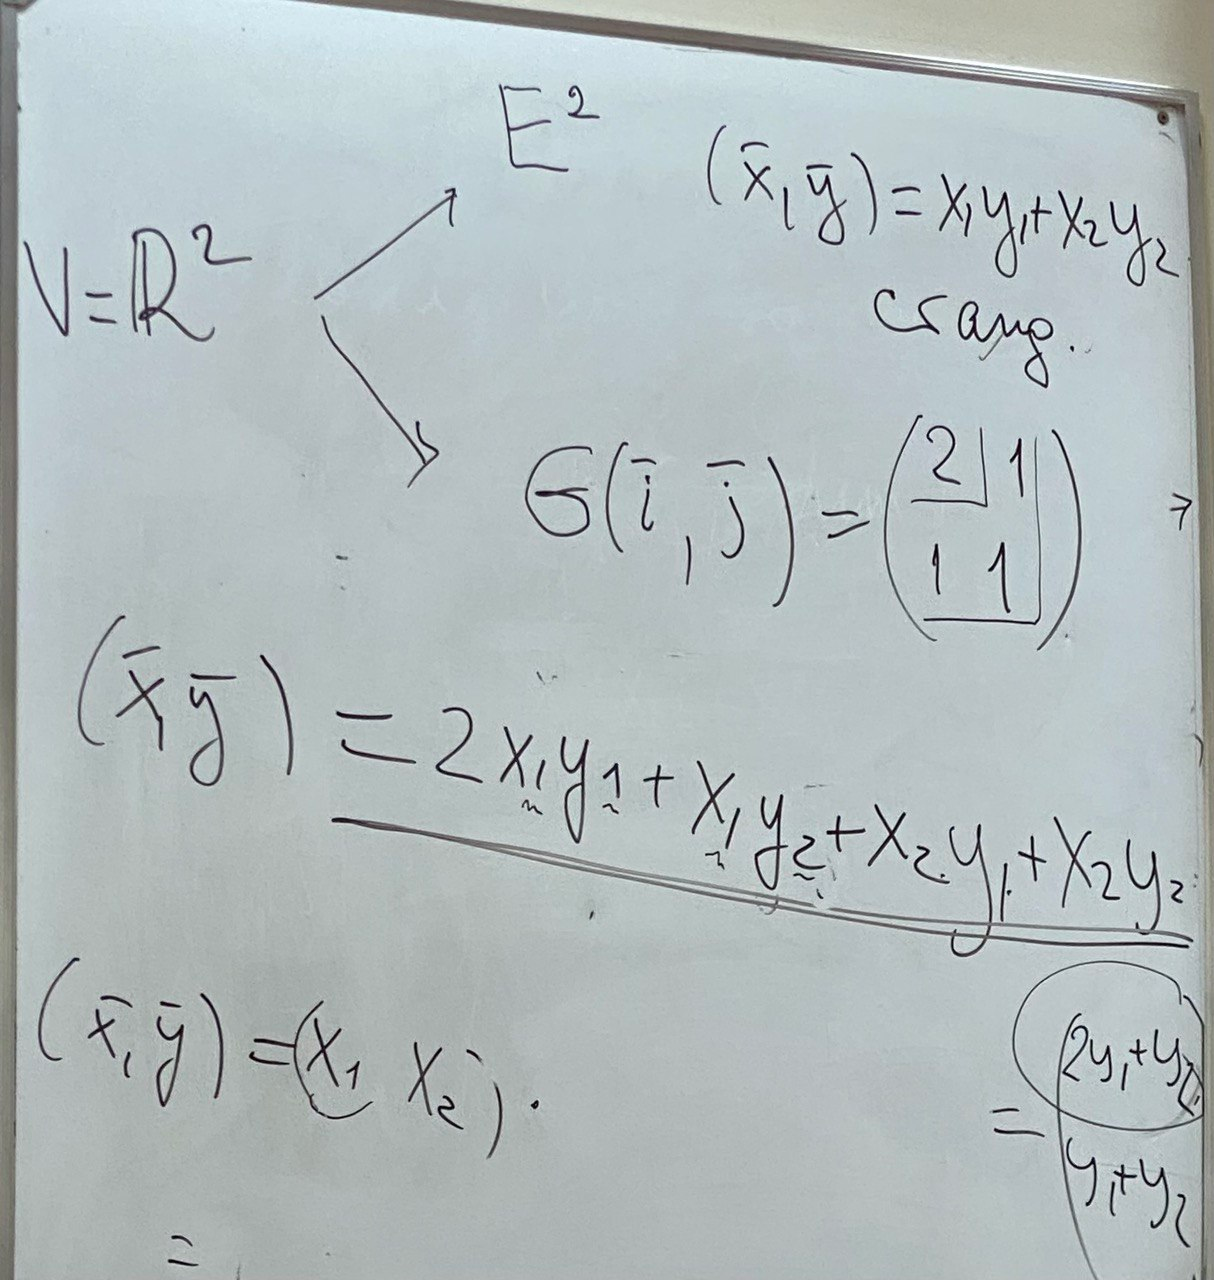 E²
(x̄, ȳ) = x₁y₁ + x₂y₂
V = ℝ²
станд.
G(ī, j̄) = (2 1
1 1)
(x̄, ȳ) = 2x₁y₁ + x₁y₂ + x₂y₁ + x₂y₂
(x̄, ȳ) = (x₁ x₂) ·
= (2y₁+y₂
y₁+y₂
=